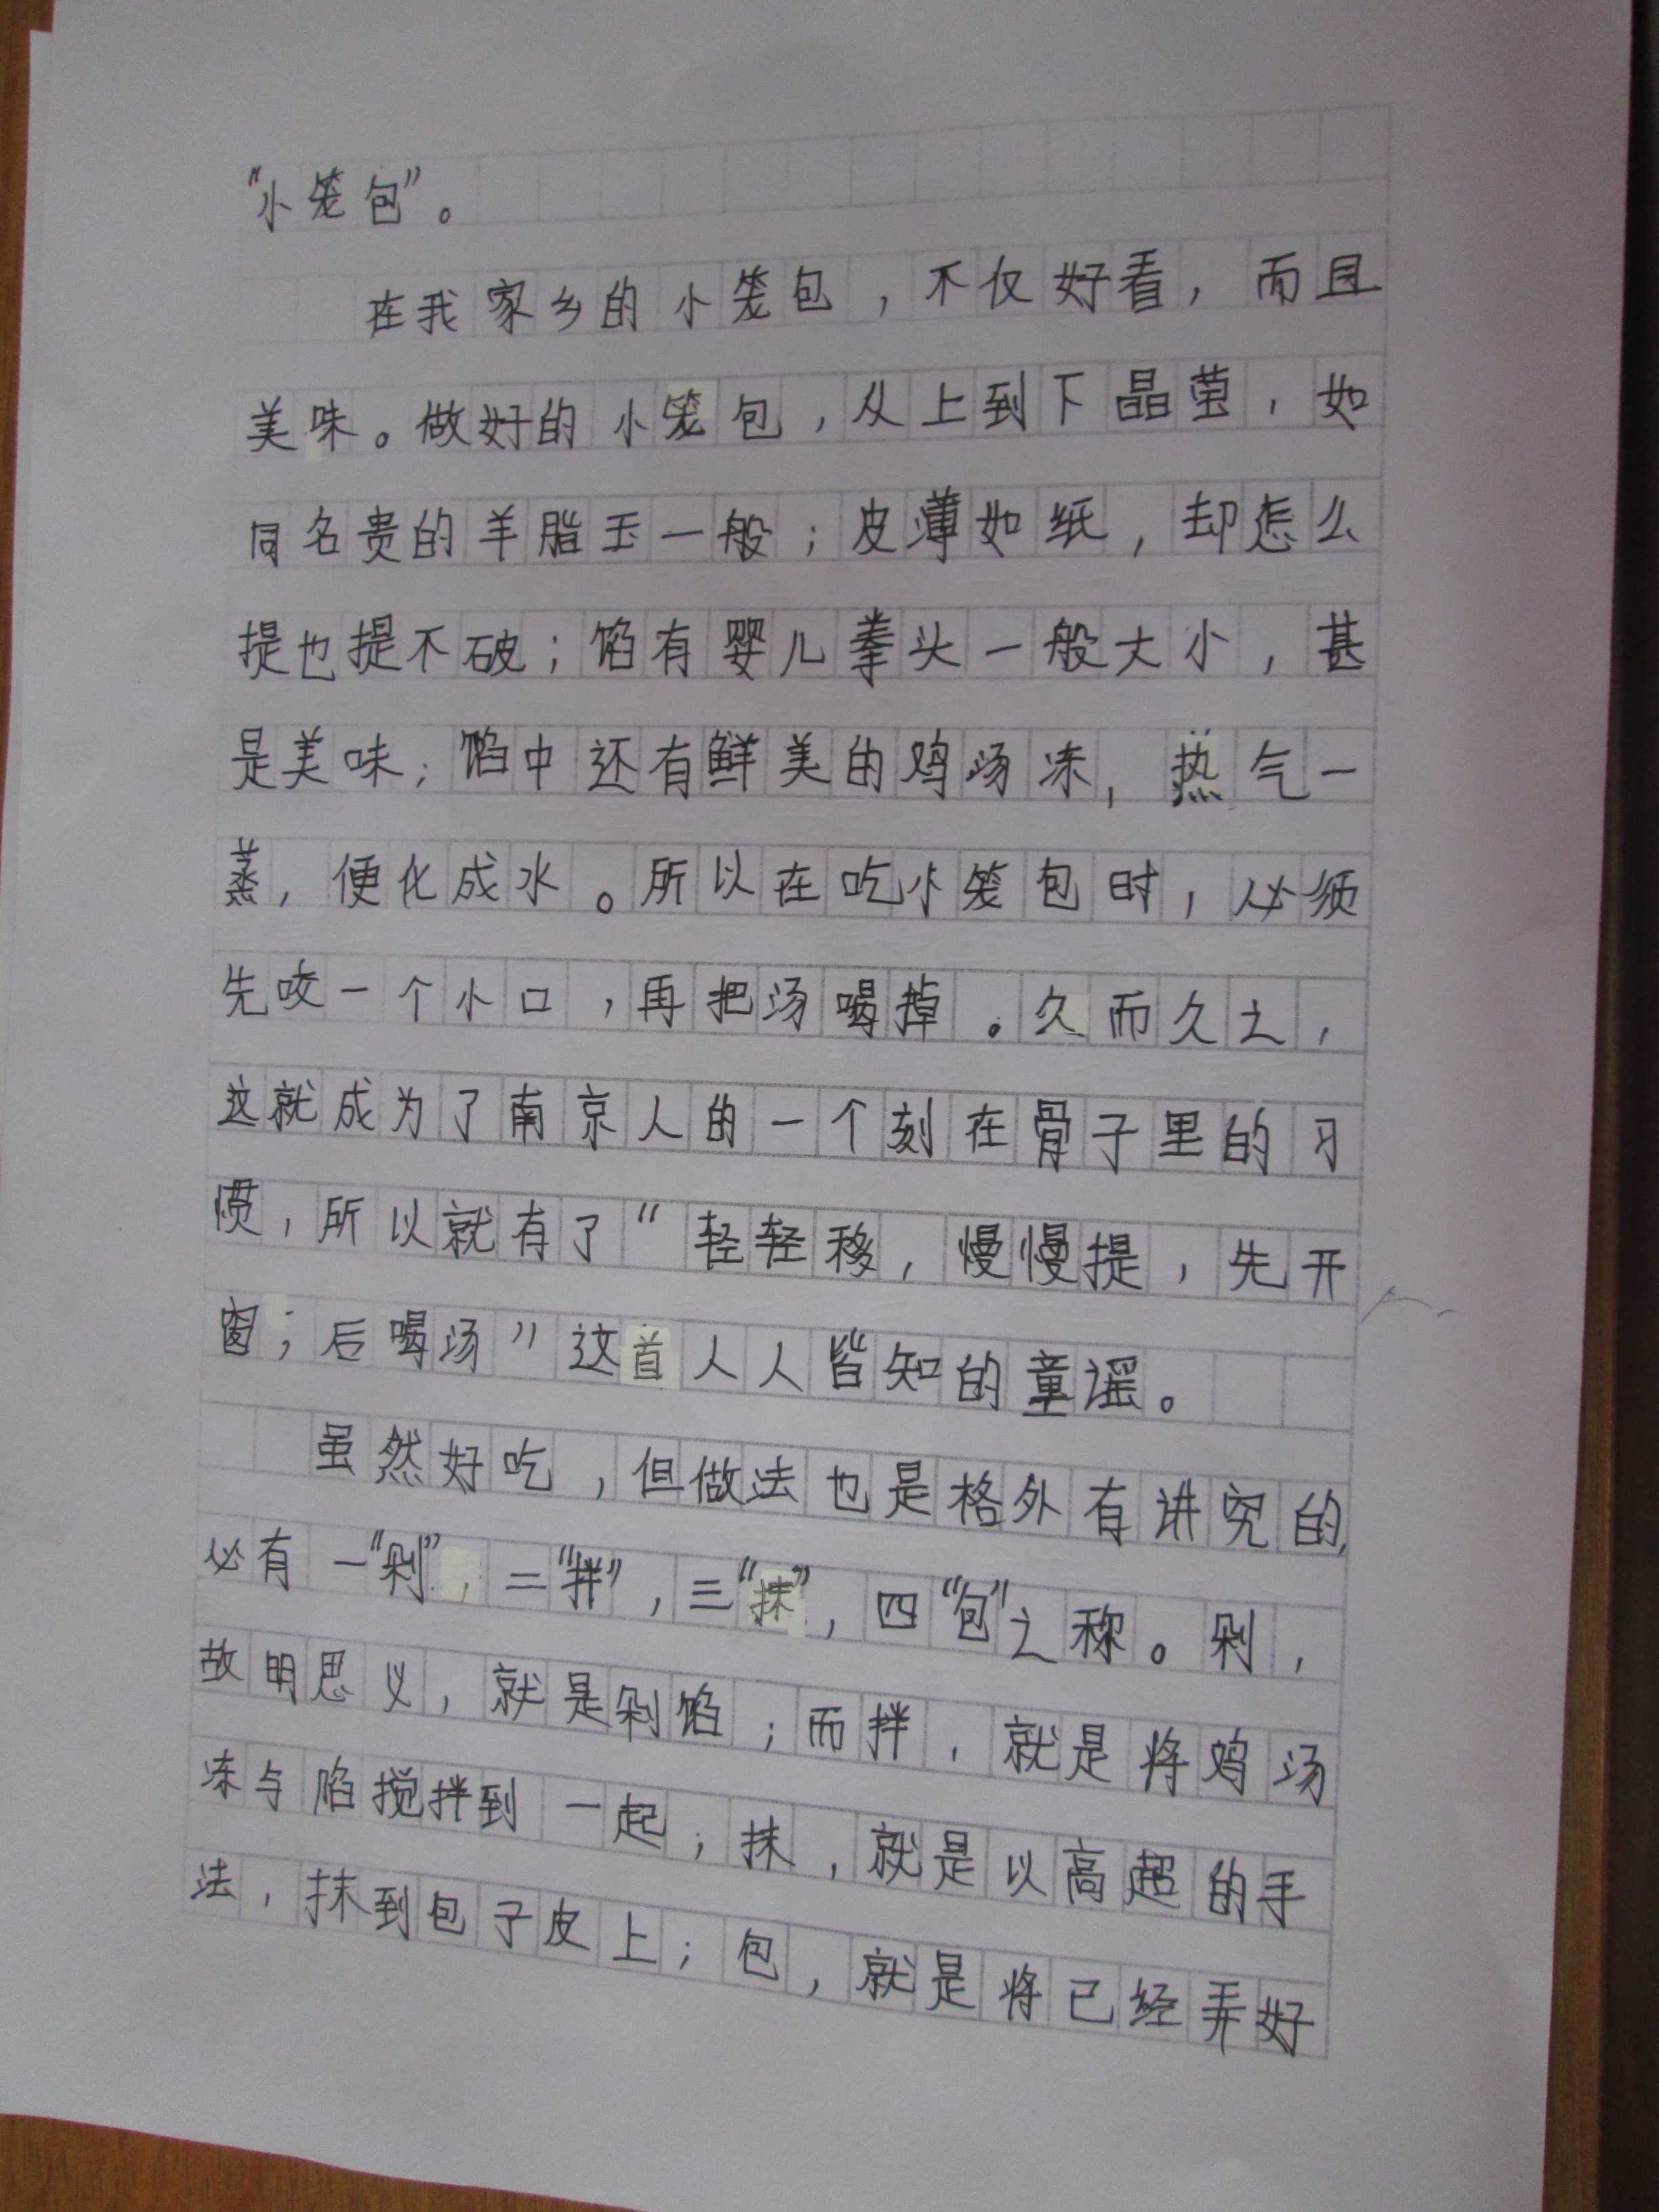 “小笼包”。
在我家乡的小笼包，不仅好看，而且
美味。做好的小笼包，从上到下晶莹，如
同名贵的羊脂玉一般；皮薄如纸，却怎么
提也提不破；馅有婴儿拳头一般大小，甚
是美味；馅中还有鲜美的鸡汤冻，热气一
蒸，便化成水。所以在吃小笼包时，必须
先咬一个小口，再把汤喝掉。久而久之，
这就成为了南京人的一个刻在骨子里的习
惯，所以就有了“轻轻移，慢慢提，先开
窗；后喝汤”这首人人皆知的童谣。
虽然好吃，但做法也是格外有讲究的，
必有一“剁”，二“拌”，三“抹”，四“包”之称。剁，
故明思义，就是剁馅；而拌，就是将鸡汤
冻与馅搅拌到一起；抹，就是以高超的手
法，抹到包子皮上；包，就是将已经弄好